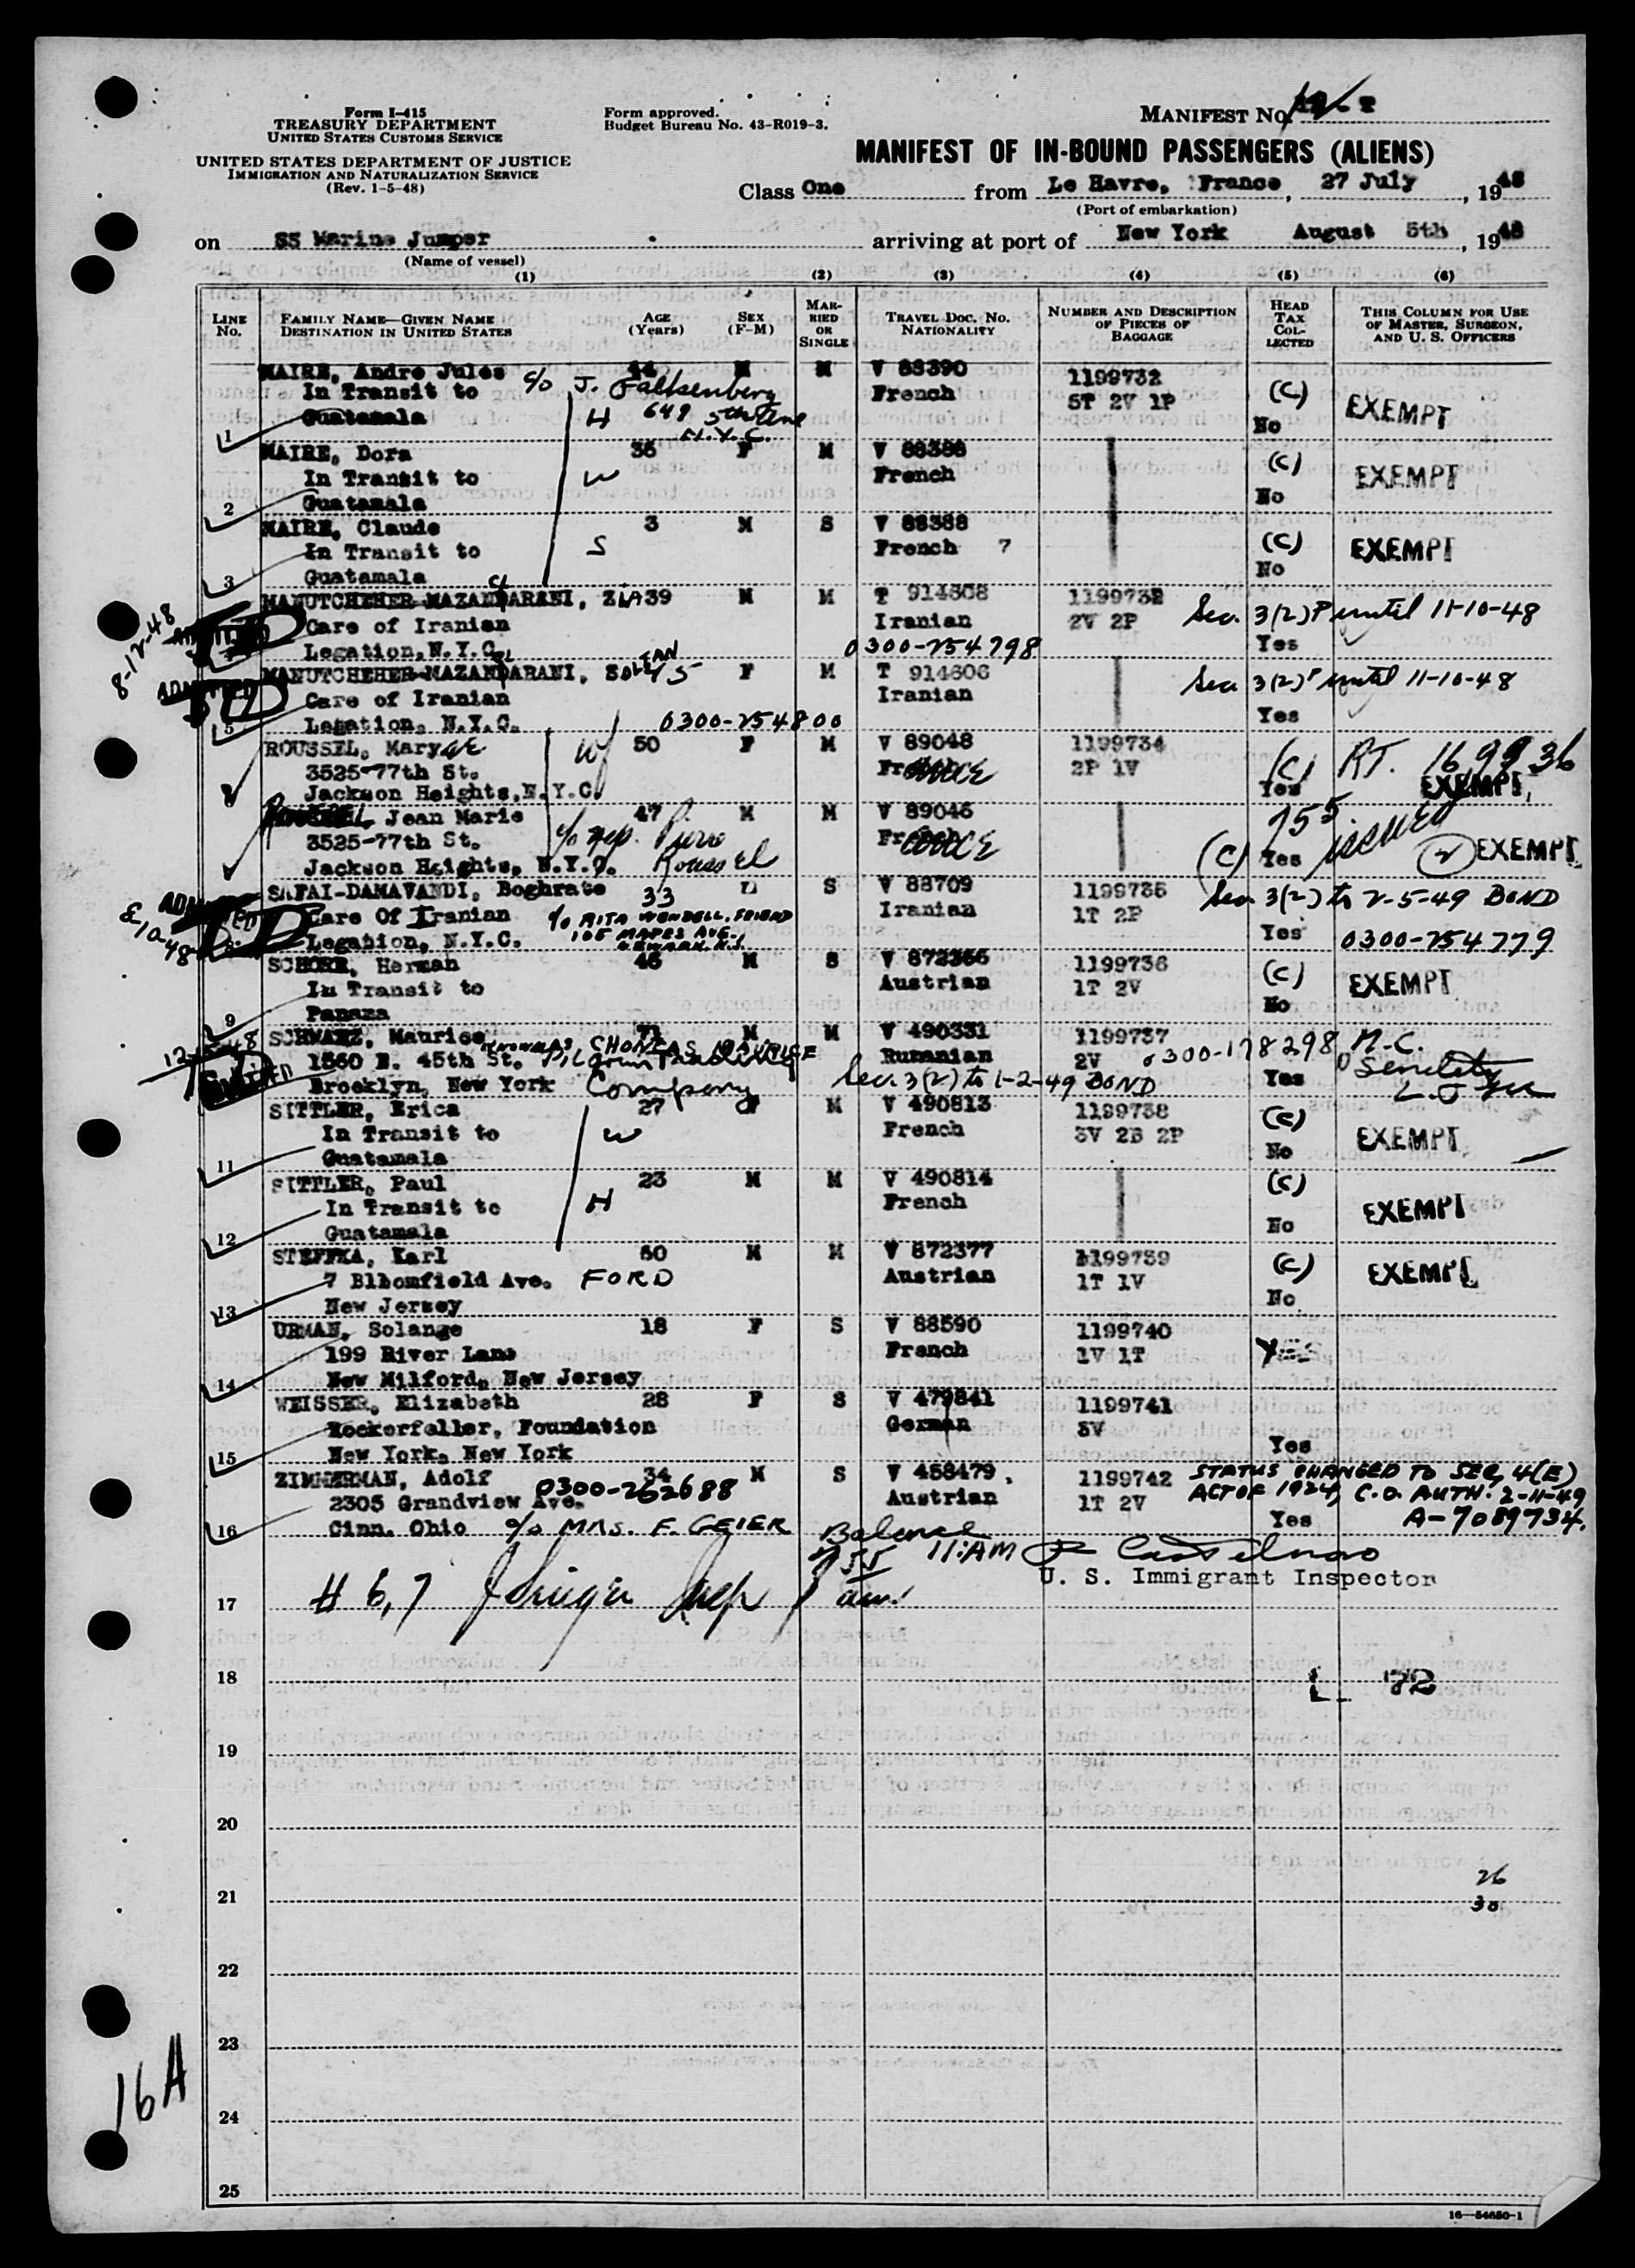 Form I-415
TREASURY DEPARTMENT
UNITED STATES CUSTOMS SERVICE
UNITED STATES DEPARTMENT OF JUSTICE
IMMIGRATION AND NATURALIZATION SERVICE
(Rev. 1-5-48)
Form approved.
Budget Bureau No. 43-R019-3.
MANIFEST No.
MANIFEST OF IN-BOUND PASSENGERS (ALIENS)
Class One from Le Havre, France, 27 July, 1948
(Port of embarkation)
on SS Marine Jumper arriving at port of New York August 5th, 1948
(Name of vessel)
(1) (2) (3) (4) (5) (6)
LINE No. FAMILY NAME—GIVEN NAME DESTINATION IN UNITED STATES AGE (Years) SEX (F-M) MARRIED OR SINGLE TRAVEL DOC. NO. NATIONALITY NUMBER AND DESCRIPTION OF PIECES OF BAGGAGE HEAD TAX COLLECTED THIS COLUMN FOR USE OF MASTER, SURGEON, AND U. S. OFFICERS
MAIRE, Andre Jules 44 M M V 88390 1199732
In Transit to c/o J. Falkenberg French 5T 2V 1P (C) EXEMPT
1 Guatamala H 649 5th Ave N.Y.C. No
MAIRE, Dora 36 F M V 88388 (C)
In Transit to W French EXEMPT
2 Guatamala No
MAIRE, Claude 3 M S V 88388
In Transit to S French 7 (C) EXEMPT
3 Guatamala No
MANUTCHEHER-MAZANDARANI, ZIA 39 M M T 914608 1199732 Sec. 3(2) until 11-10-48
8-12-48 ADMITTED Care of Iranian Iranian 2V 2P
Legation, N.Y.C. 0300-254798 Yes
MANUTCHEHER-MAZANDARANI, SOLTAN F M T 914606 Sec 3(2) until 11-10-48
ADMITTED Care of Iranian Iranian
5 Legation, N.Y.C. 0300-254800 Yes
ROUSSEL, Maryse W 50 F M V 89048 1199734 (C) RT. 169936
3525-77th St. France 2P 1V EXEMPT
Jackson Heights, N.Y.C. Yes
ROUSSEL Jean Marie 47 M M V 89046 issued
3525-77th St. c/o nep. Roussel France
Jackson Heights, N.Y.C. (C) Yes EXEMPT
SAFAI-DAMAVANDI, Boghrate 33 S V 88709 1199735 Sec. 3(2) to 2-5-49 BOND
8-10-48 ADMITTED Care Of Iranian c/o RITA WENDELL. FRIEND Iranian 1T 2P
Legation, N.Y.C. 105 MAPES AVE. NEWARK. N.J. Yes 0300-254779
SCHORR, Herman 46 M S V 872366 1199736 (C)
In Transit to Austrian 1T 2V EXEMPT
9 Panama No
SCHWARZ, Maurice M M V 490331 1199737 M.C.
1560 E. 45th St. Pilgrim Trading Company Rumanian 2V 0300-178298 Senility
Brooklyn, New York Sec. 3(2) to 1-2-49 BOND Yes
SITTLER, Erica 27 F M V 490813 1199738
In Transit to W French 3V 2B 2P (C) EXEMPT
11 Guatamala No
SITTLER, Paul 23 M M V 490814 (C)
In Transit to H French EXEMPT
12 Guatamala No
STEFFKA, Karl 50 M M V 872377 1199739
7 Bllomfield Ave. FORD Austrian 1T 1V (C) EXEMPT
13 New Jersey No
URMAN, Solange 18 F S V 88590 1199740
199 River Lane French 1V 1T YES
14 New Milford, New Jersey
WEISSER, Elizabeth 28 F S V 479841 1199741
Rockerfeller, Foundation German 3V
15 New York, New York Yes
ZIMMERMAN, Adolf 34 M S V 458479 1199742 STATUS CHANGED TO SEC. 4(E)
2305 Grandview Ave. 0300-262688 Austrian 1T 2V ACT OF 1924, C.O. AUTH. 2-11-49
16 Cinn. Ohio c/o MRS. F. GEIER Yes A-7089734.
Balance 11:AM
U. S. Immigrant Inspector
17 # 6,7
18
19
20
26
21
30
22
23
16A
24
25
16—54650-1